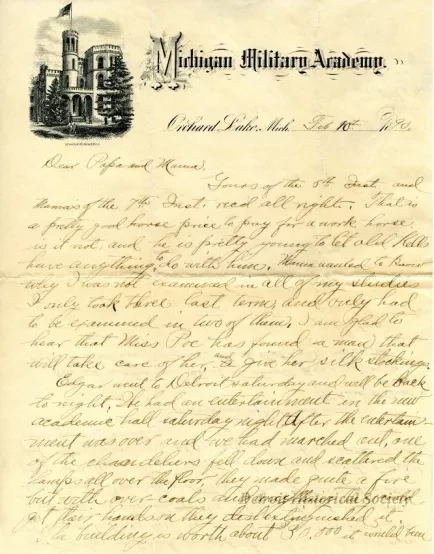 Michigan Military Academy.
Orchard Lake, Mich. Feb 10th 1890.
Dear Papa and Mama.
Yours of the 5th Inst. and
Mamas of the 7th Inst. recd all right. That is
a pretty good horse price to pay for a work horse
is it not and he is pretty young to let old
have anything to do with him. Mama wanted to know
why I was not examined in all of my studies
I only took three last term, and only had
to be examined in two of them. I am glad to
hear that Miss Poe has found a man that
will take care of her, and give her silk stockings.
Edgar went to Detroit saturday and will be back
to night. We had an entertainment in the new
academic hall saturday night. After the entertain-
ment was over and we had marched out, one
of the chandeliers fell down and scattered the
lamps all over the floor, they made quite a fire
but with over-coats and
Historical Society
get their hands on they
The building is worth about 30,000 it would been